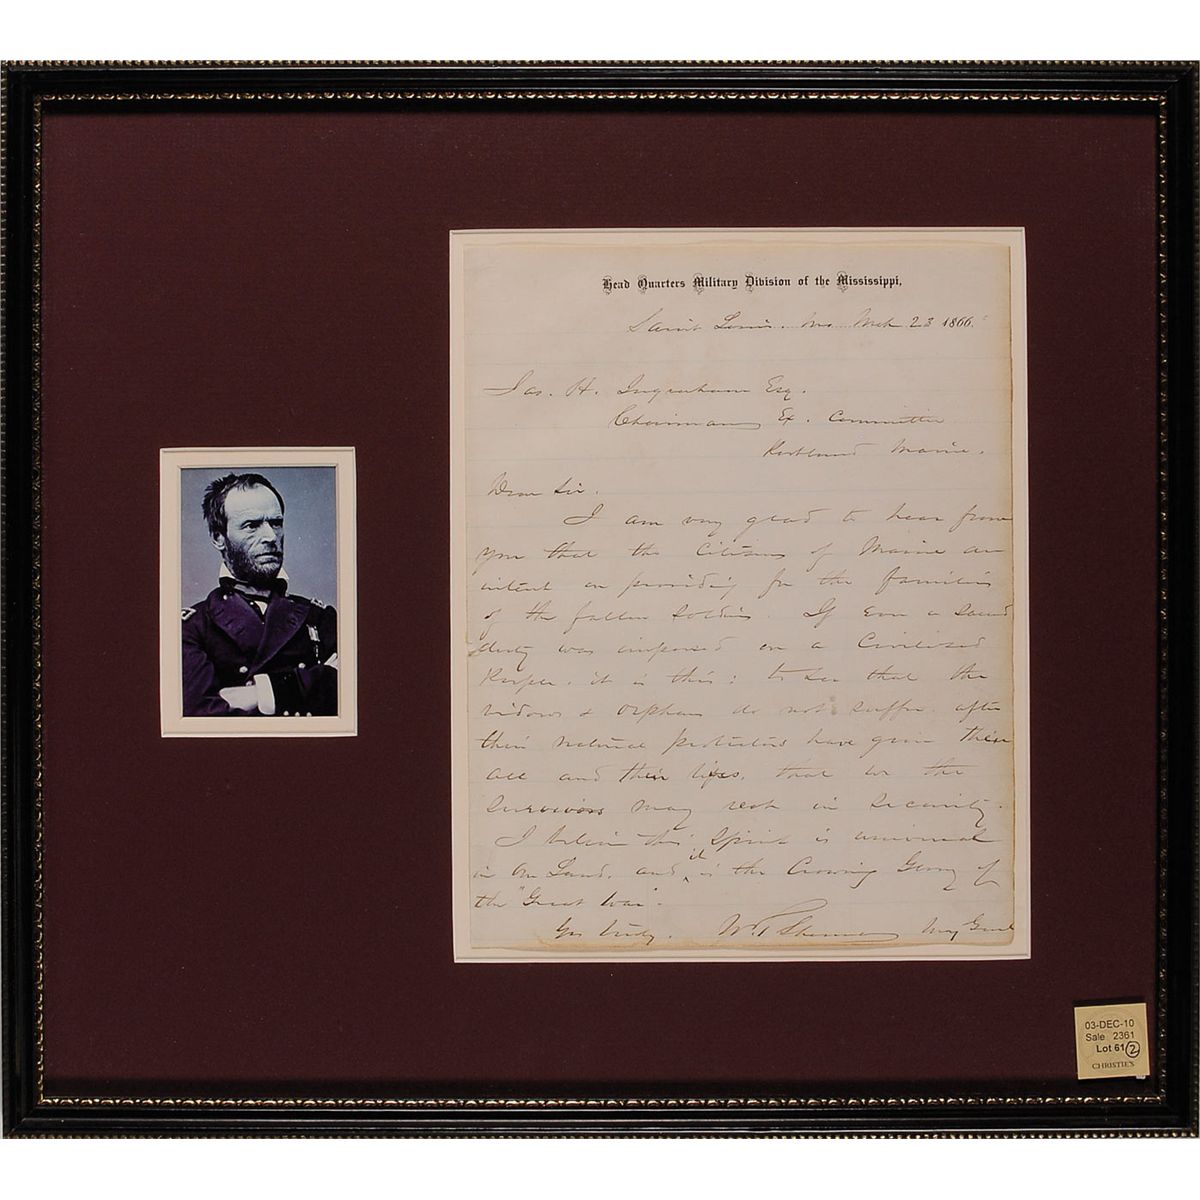 Head Quarters Military Division of the Mississippi,
Saint Louis. Mo. Mch 23 1866.
Jas. H. Ingraham Esq.
Chairman Ex. Committee
Portland Maine.
Dear Sir.
I am very glad to hear from
you that the Citizens of Maine are
intent on providing for the families
of the fallen Soldiers. If ever a sacred
duty was imposed on a Civilized
People, it is this: to see that the
widows & orphans do not suffer after
their natural protectors have given their
all and their lifes, that we the
survivors may rest in security.
I believe this Spirit is universal
in our Land, and it is the Crowning Glory of
the "Great War".
Yrs truly, W. T. Sherman Maj Genl
03-DEC-10
Sale 2361
Lot 61 2
CHRISTIE'S